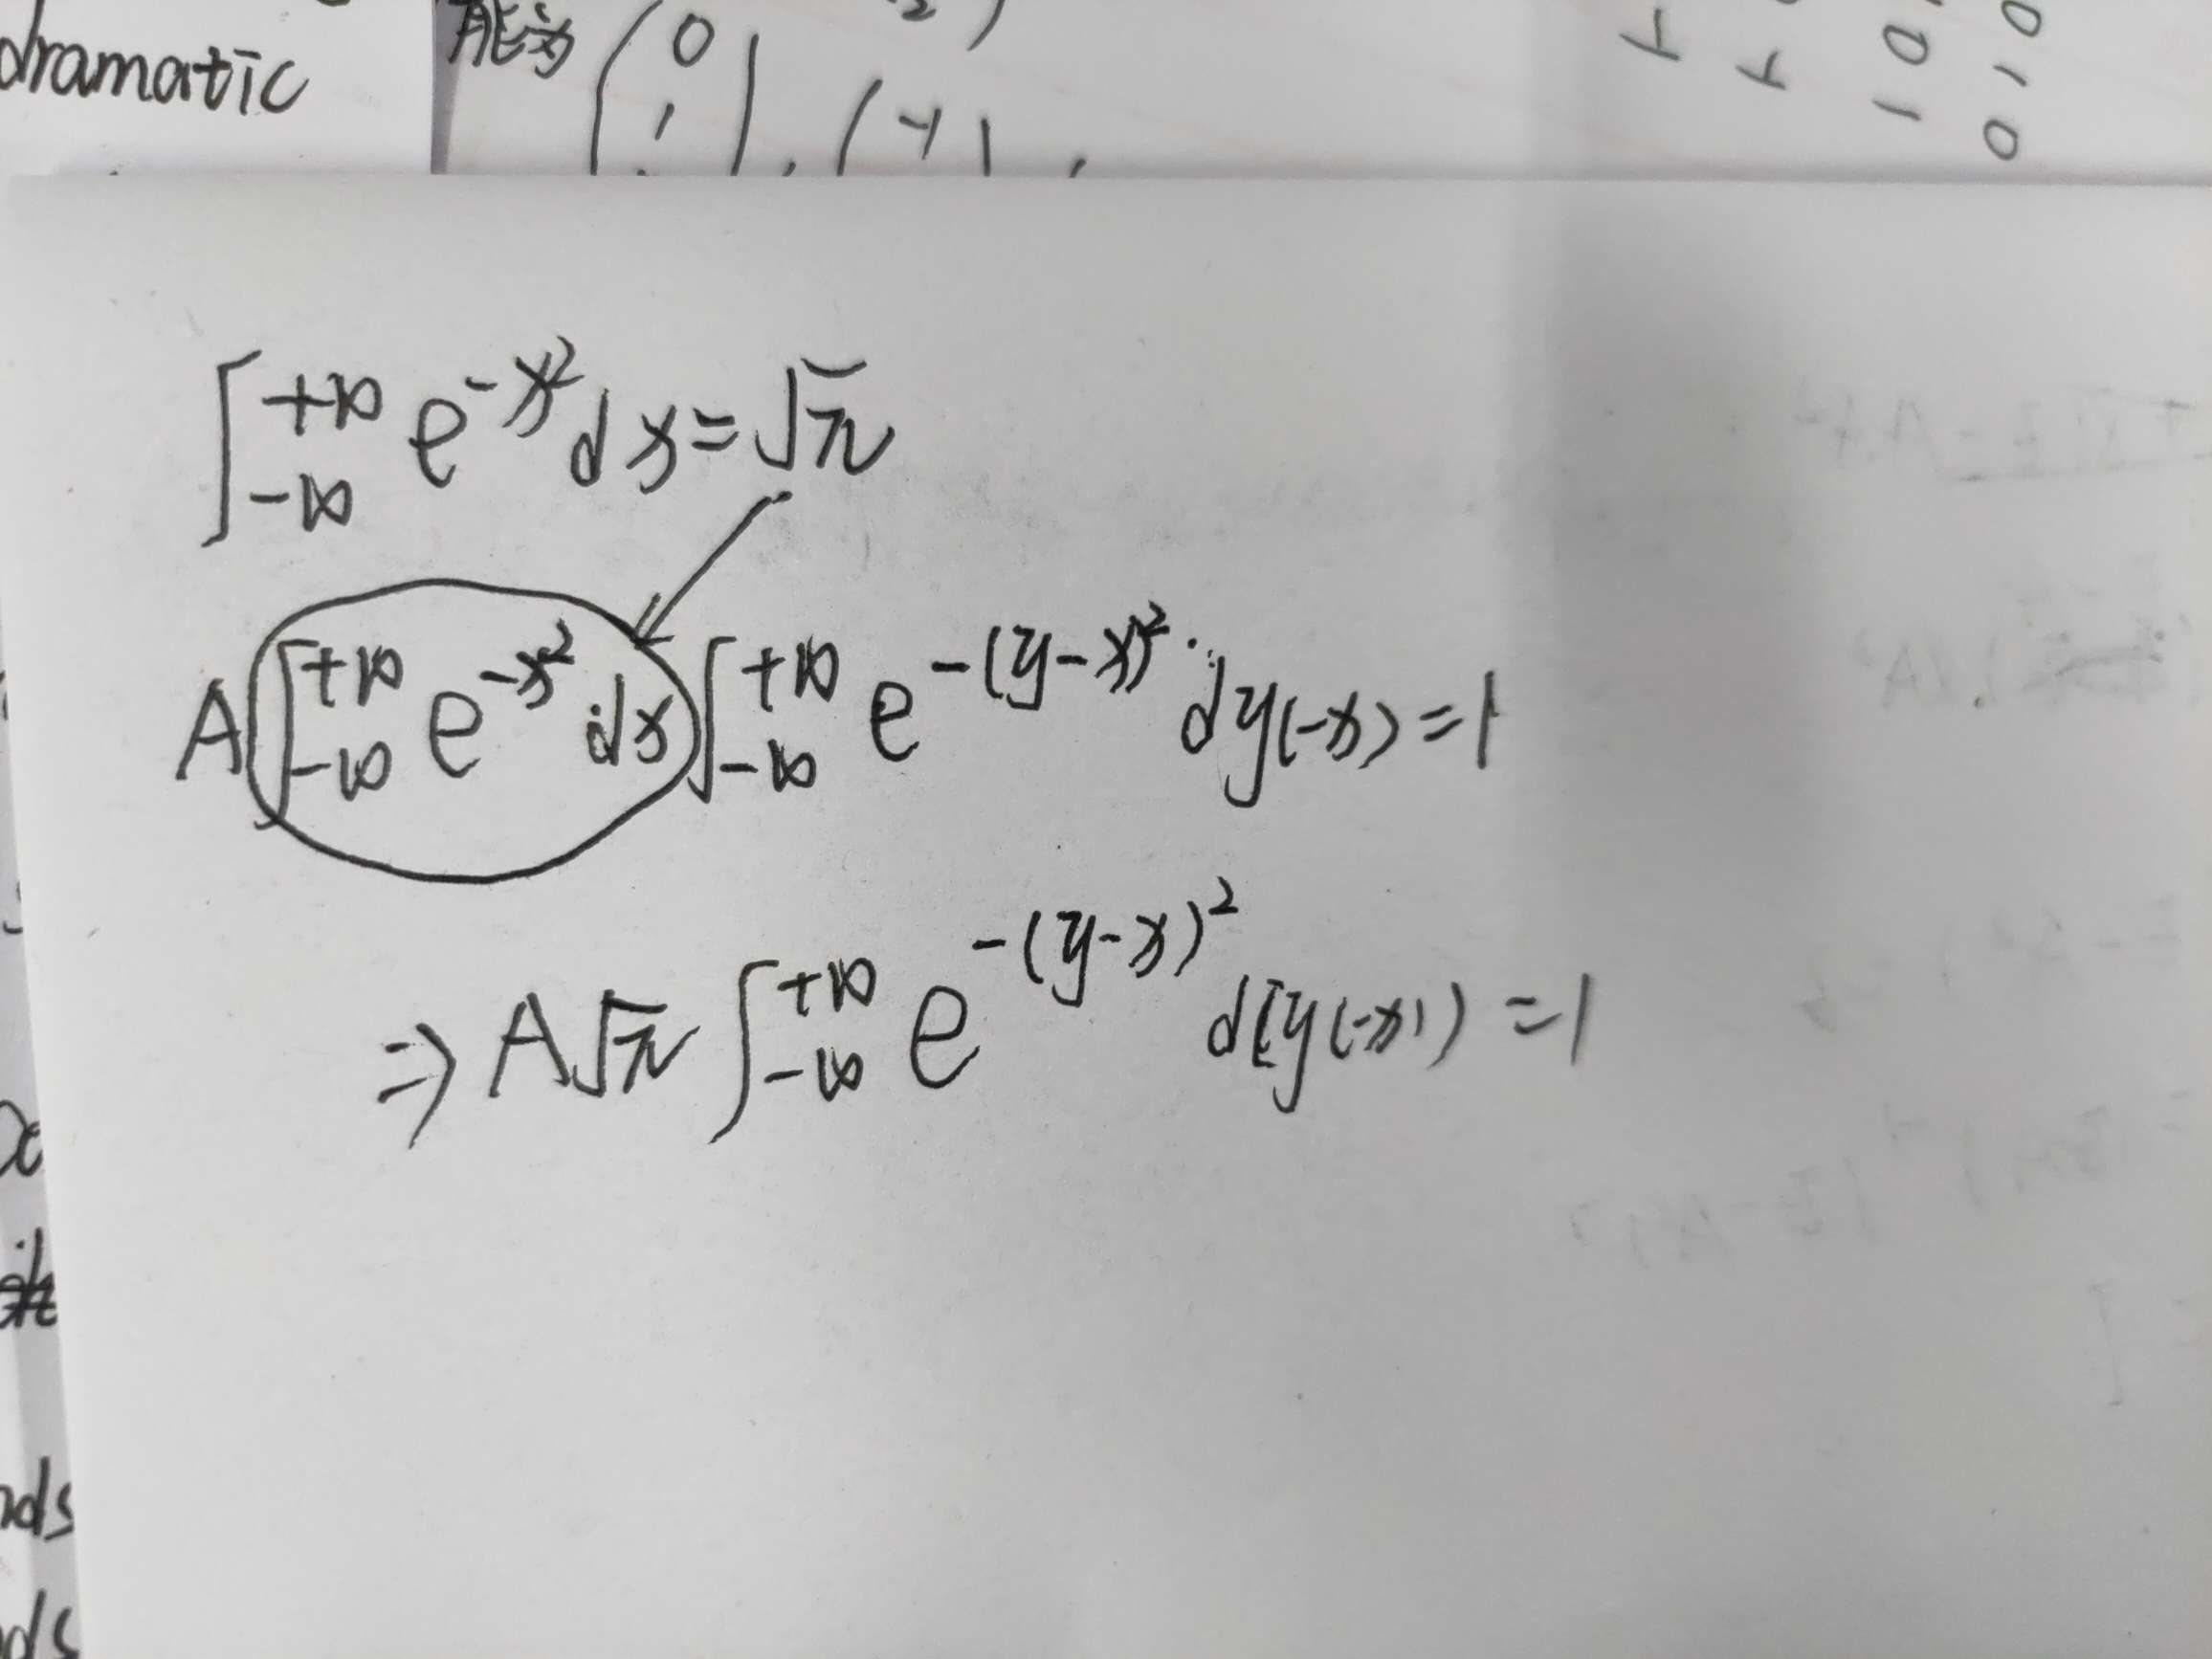 dramatic
能为 ( 0 1 ) , ( -1
∫_{-∞}^{+∞} e^{-x²} dx = √π
A ∫_{-∞}^{+∞} e^{-x²} dx ∫_{-∞}^{+∞} e^{-(y-x)²} dy(-x) = 1
⇒ A√π ∫_{-∞}^{+∞} e^{-(y-x)²} d(y(-x)) = 1